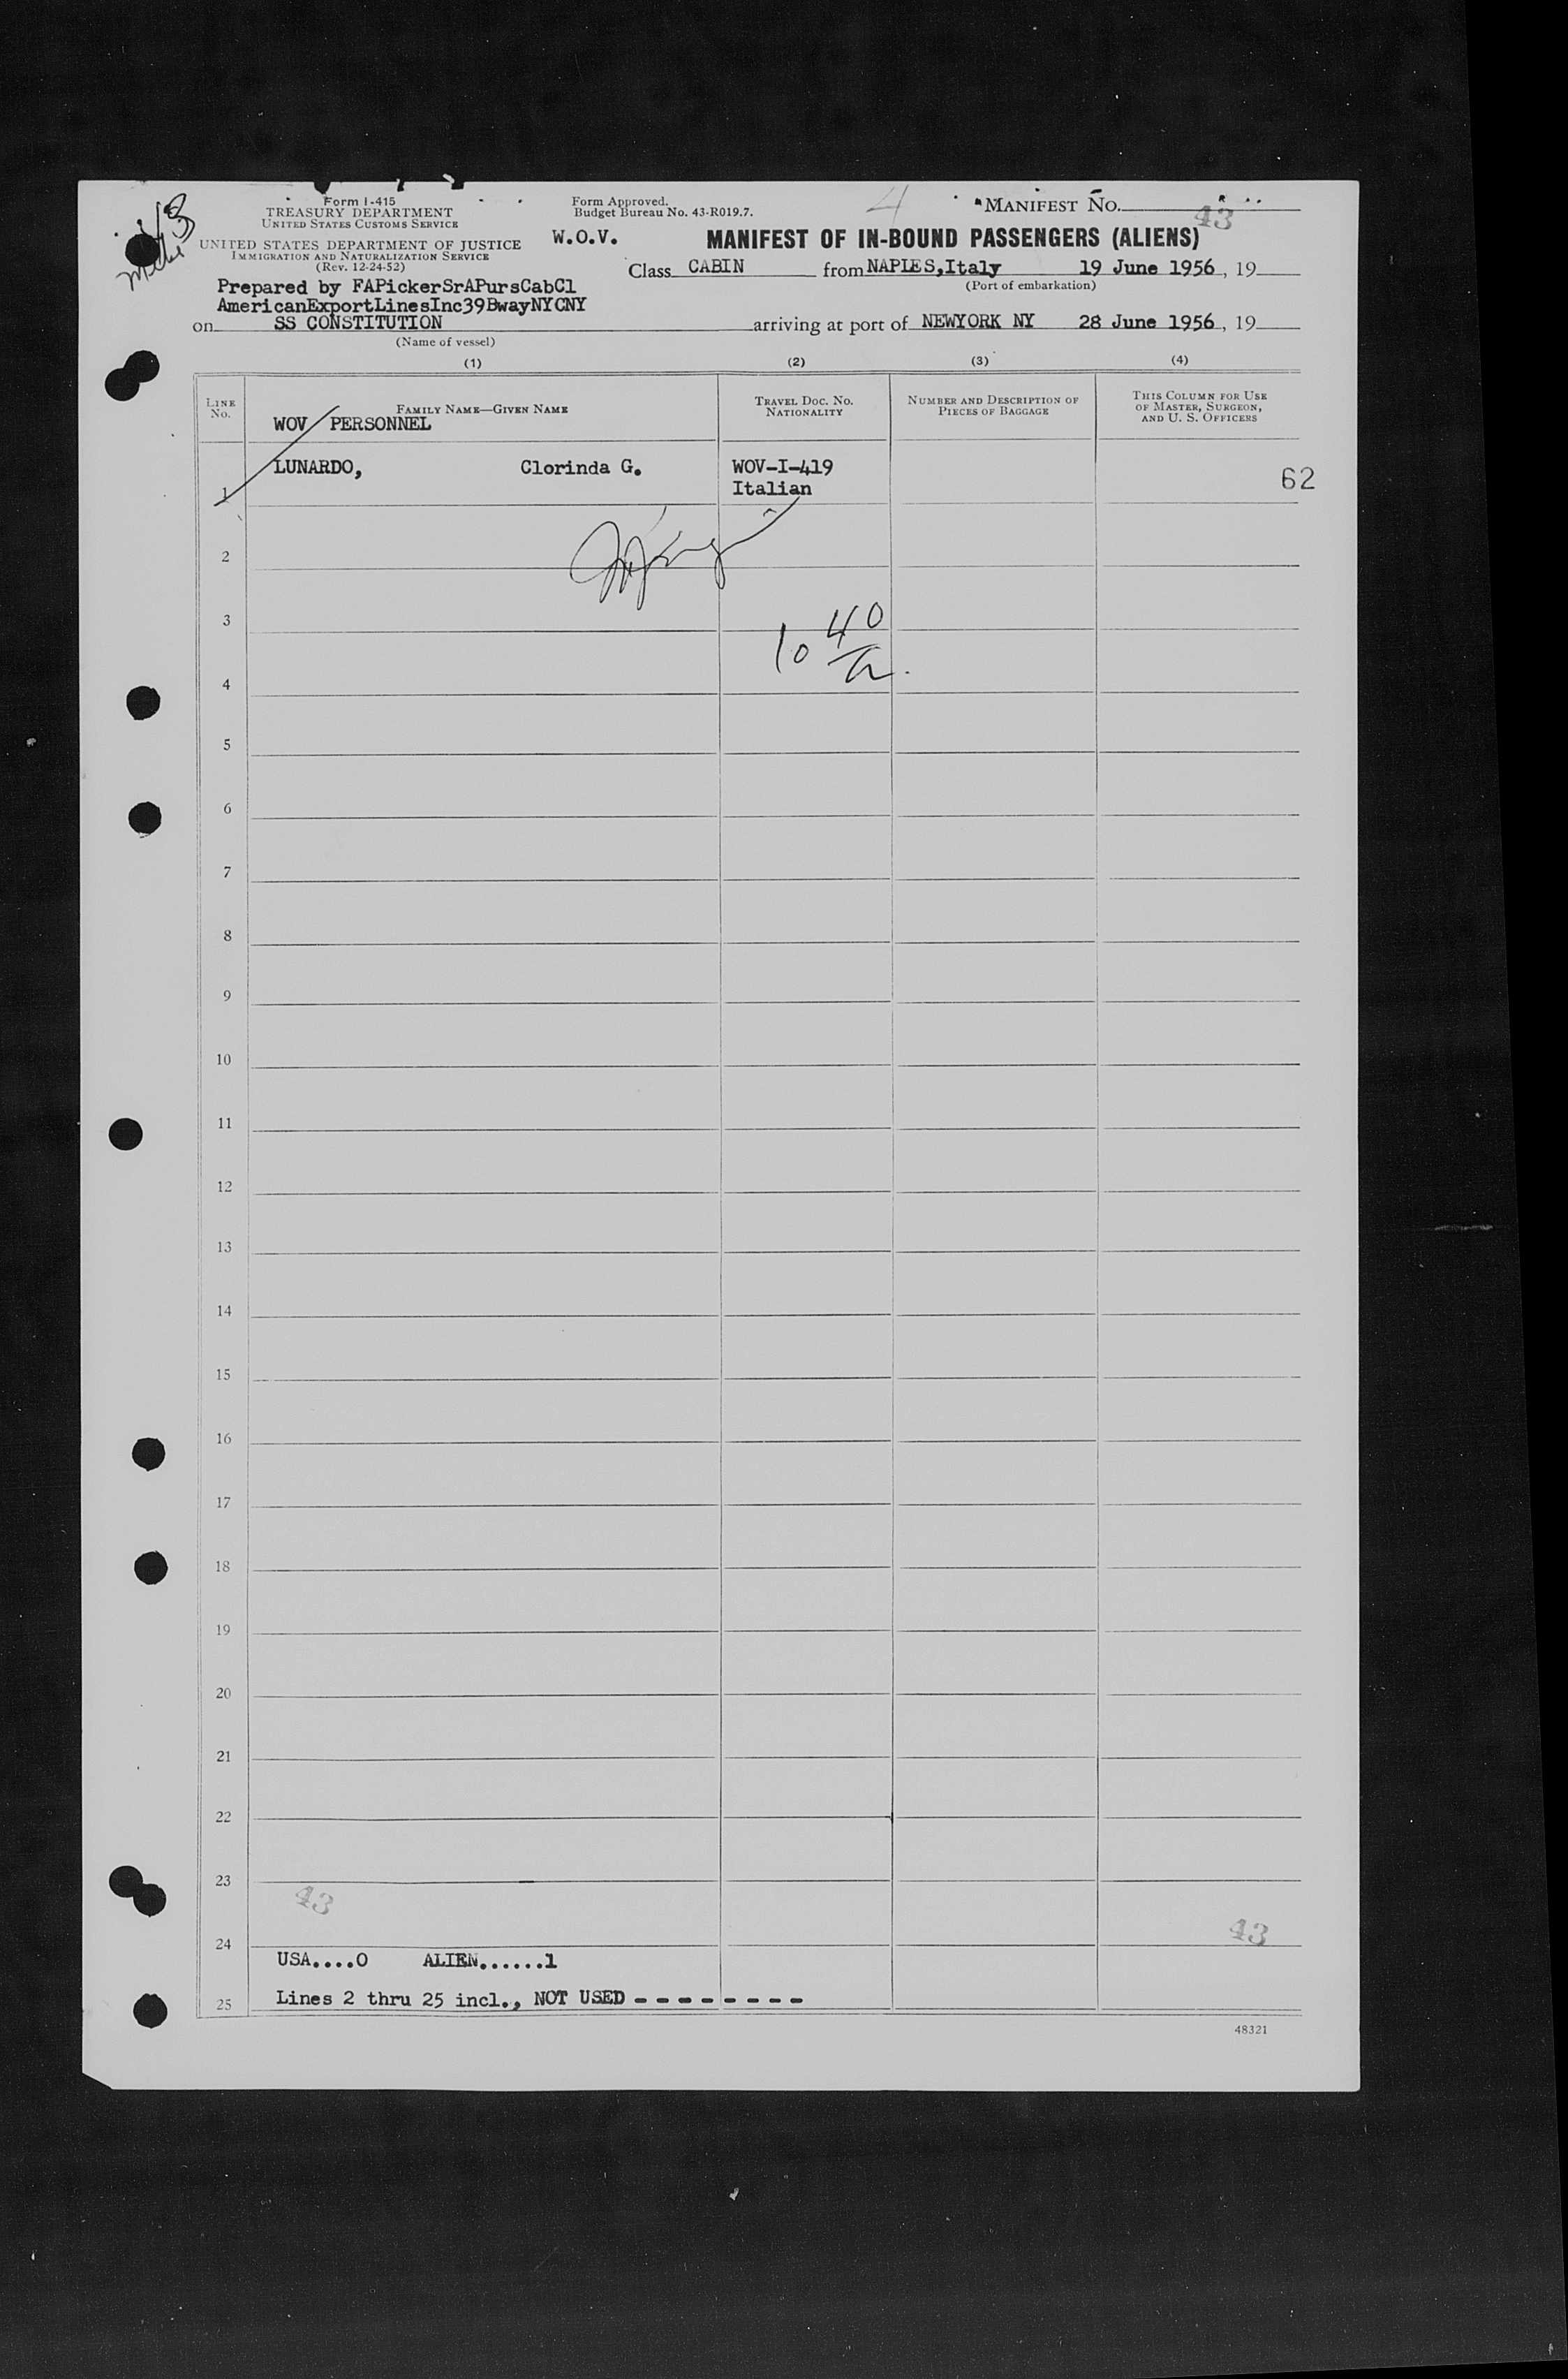 Form I-415
TREASURY DEPARTMENT
UNITED STATES CUSTOMS SERVICE
UNITED STATES DEPARTMENT OF JUSTICE
IMMIGRATION AND NATURALIZATION SERVICE
(Rev. 12-24-52)
Form Approved.
Budget Bureau No. 43-R019.7.
4
MANIFEST No.
43
W.O.V.
MANIFEST OF IN-BOUND PASSENGERS (ALIENS)
Class CABIN from NAPLES,Italy 19 June 1956, 19
(Port of embarkation)
Prepared by FAPickerSrAPursCabCl
AmericanExportLinesInc39BwayNYCNY
on SS CONSTITUTION arriving at port of NEWYORK NY 28 June 1956, 19
(Name of vessel)
(1) (2) (3) (4)
LINE No.
FAMILY NAME—GIVEN NAME
TRAVEL DOC. NO. NATIONALITY
NUMBER AND DESCRIPTION OF PIECES OF BAGGAGE
THIS COLUMN FOR USE OF MASTER, SURGEON, AND U. S. OFFICERS
WOV PERSONNEL
1 LUNARDO, Clorinda G. WOV-I-419 62
Italian
2
3
10 40
4
5
6
7
8
9
10
11
12
13
14
15
16
17
18
19
20
21
22
23
43
43
24
USA....0 ALIEN......1
25 Lines 2 thru 25 incl., NOT USED - - - - - - - -
48321